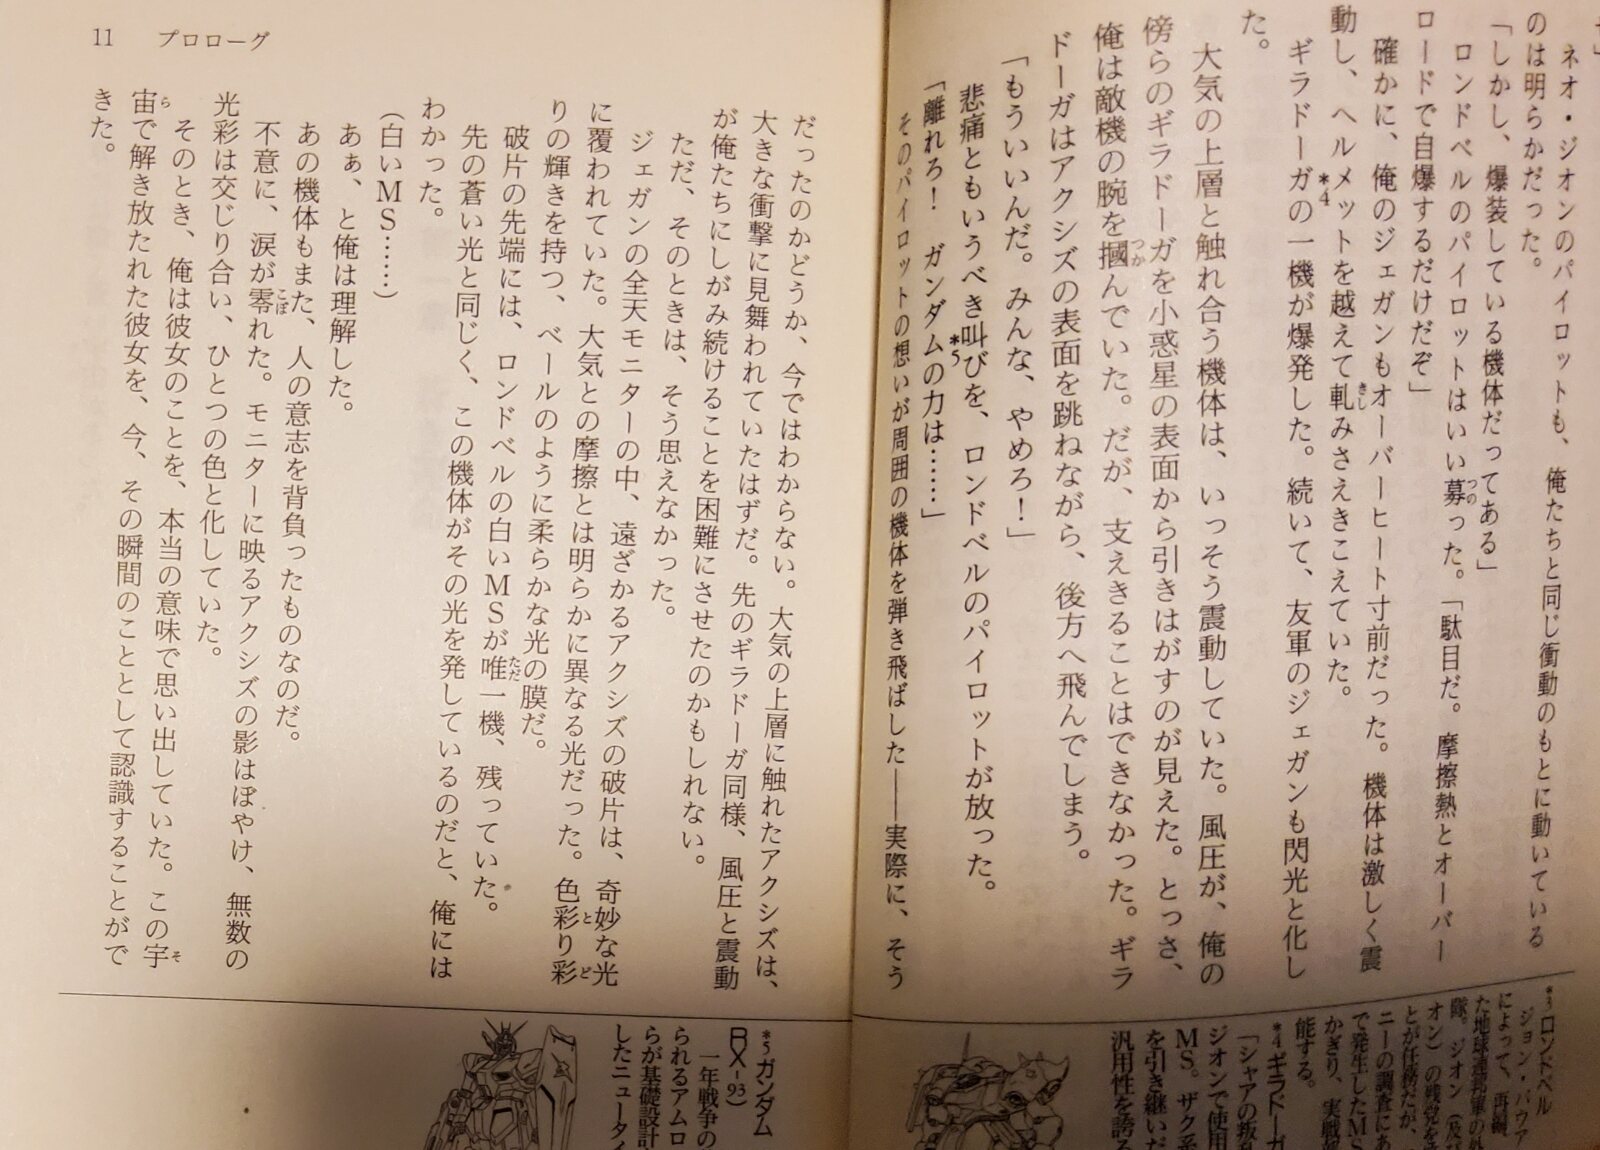 ネオ・ジオンのパイロットも、俺たちと同じ衝動のもとに動いている
のは明らかだった。
「しかし、爆装している機体だってある」
ロンドベルのパイロットはいい募った。「駄目だ。摩擦熱とオーバー
ロードで自爆するだけだぞ」
確かに、俺のジェガンもオーバーヒート寸前だった。機体は激しく震
動し、ヘルメットを越えて軋みさえきこえていた。
ギラドーガの一機が爆発した。続いて、友軍のジェガンも閃光と化し
た。
大気の上層と触れ合う機体は、いっそう震動していた。風圧が、俺の
傍らのギラドーガを小惑星の表面から引きはがすのが見えた。とっさ、
俺は敵機の腕を摑んでいた。だが、支えきることはできなかった。ギラ
ドーガはアクシズの表面を跳ねながら、後方へ飛んでしまう。
「もういいんだ。みんな、やめろ!」
悲痛ともいうべき叫びを、ロンドベルのパイロットが放った。
「離れろ! ガンダムの力は……」
そのパイロットの想いが周囲の機体を弾き飛ばした――実際に、そう
*3ロンドベル
ジョン・バウア
によって、再編
た地球連邦軍の外
隊。ジオン(及び
オン)の残党を
とが任務だが、
ニーの調査にあ
で発生したMS
かぎり、実戦
能する。
*4ギラドーガ
「シャアの叛
ジオンで使用
MS。ザク系
を引き継いだ
汎用性を誇る
11 プロローグ
だったのかどうか、今ではわからない。大気の上層に触れたアクシズは、
大きな衝撃に見舞われていたはずだ。先のギラドーガ同様、風圧と震動
が俺たちにしがみ続けることを困難にさせたのかもしれない。
ただ、そのときは、そう思えなかった。
ジェガンの全天モニターの中、遠ざかるアクシズの破片は、奇妙な光
に覆われていた。大気との摩擦とは明らかに異なる光だった。色彩り彩
りの輝きを持つ、ベールのように柔らかな光の膜だ。
破片の先端には、ロンドベルの白いMSが唯一機、残っていた。
先の蒼い光と同じく、この機体がその光を発しているのだと、俺には
わかった。
(白いMS……)
あぁ、と俺は理解した。
あの機体もまた、人の意志を背負ったものなのだ。
不意に、涙が零れた。モニターに映るアクシズの影はぼやけ、無数の
光彩は交じり合い、ひとつの色と化していた。
そのとき、俺は彼女のことを、本当の意味で思い出していた。この宇
宙で解き放たれた彼女を、今、その瞬間のこととして認識することがで
きた。
*5ガンダム
RX-93)
一年戦争の
られるアムロ
らが基礎設計
したニュータイ